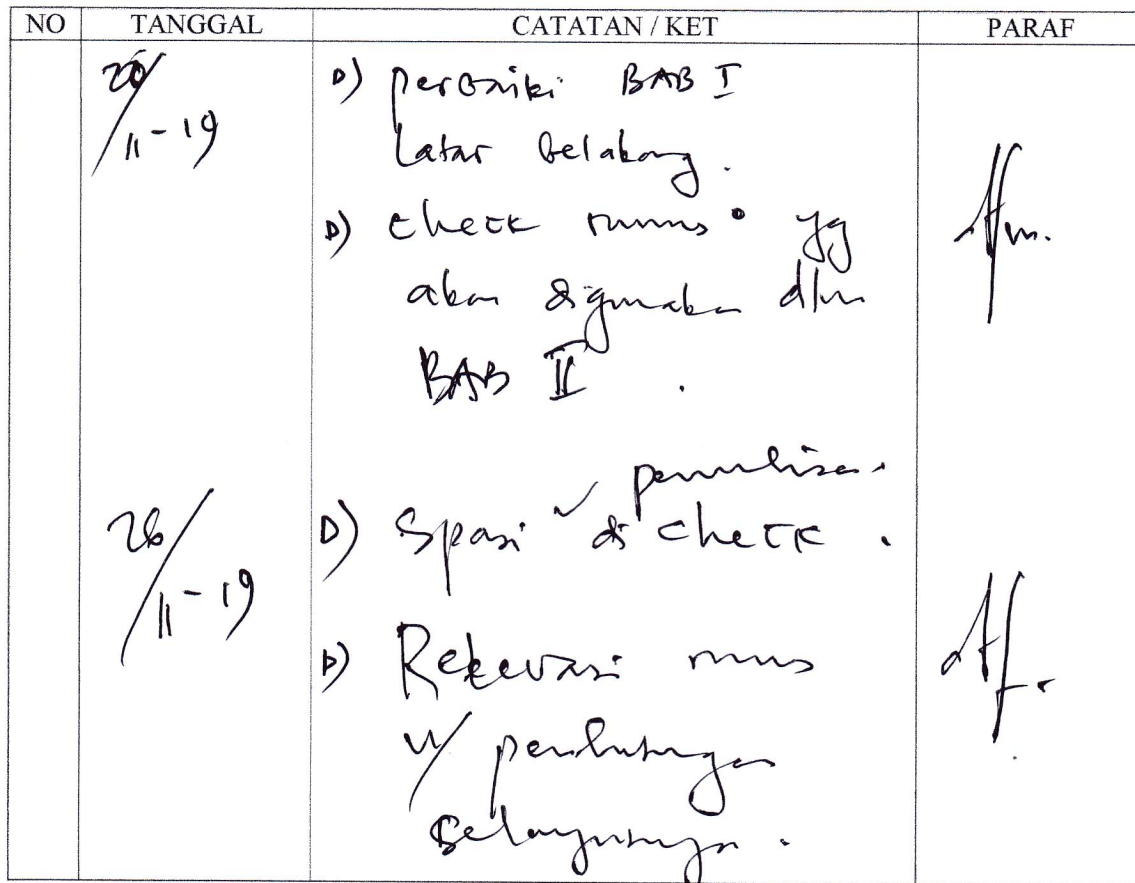 NO TANGGAL CATATAN / KET PARAF
20/11-19
D) perbaiki BAB I
Latar belakang.
D) check rumus yg
akan digunakan dlm
BAB II .
penulisan.
26/11-19
D) Spasi di check .
D) Relevasi rumus
u/ perhitungan
selanjutnya .